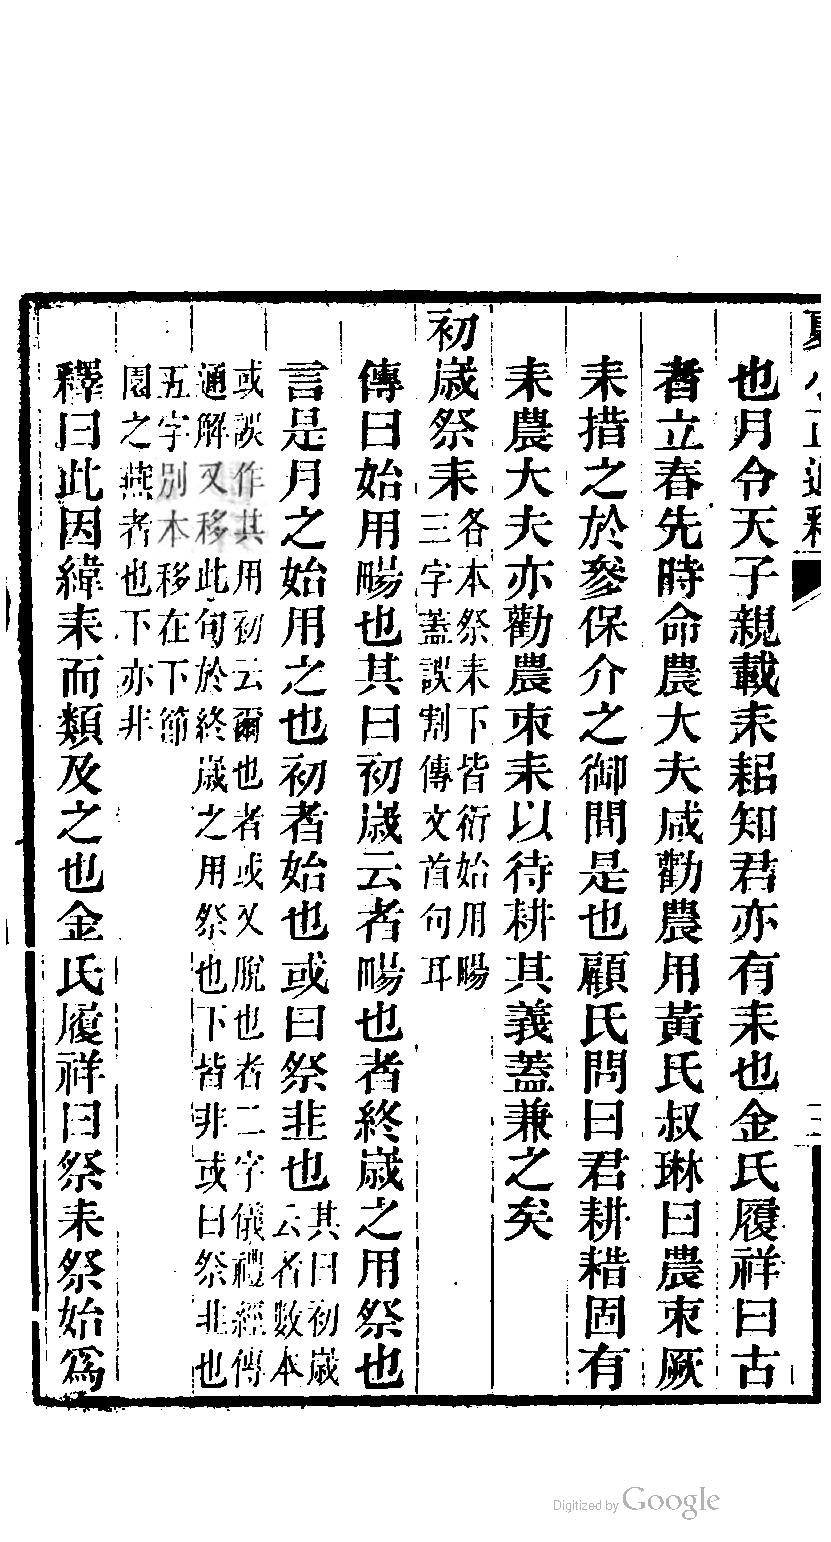 夏小正通釋
也月令天子親載耒耜知君亦有耒也金氏履祥曰古
者立春先時命農大夫咸勸農用黃氏叔琳曰農束厥
耒措之於參保介之御間是也顧氏問曰君耕耤固有
耒農大夫亦勸農束耒以待耕其義蓋兼之矣
初歲祭耒各本祭耒下皆衍始用暢
三字蓋誤割傳文首句耳
傳曰始用暢也其曰初歲云者暢也者終歲之用祭也
言是月之始用之也初者始也或曰祭韭也其曰初歲
云者數本
或誤作其用初云爾也者或又脫也者二字儀禮經傳
通解又移此句於終歲之用祭也下皆非或曰祭韭也
五字別本移在下節
囿之燕者也下亦非
釋曰此因緯耒而類及之也金氏履祥曰祭耒祭始爲
Digitized by Google